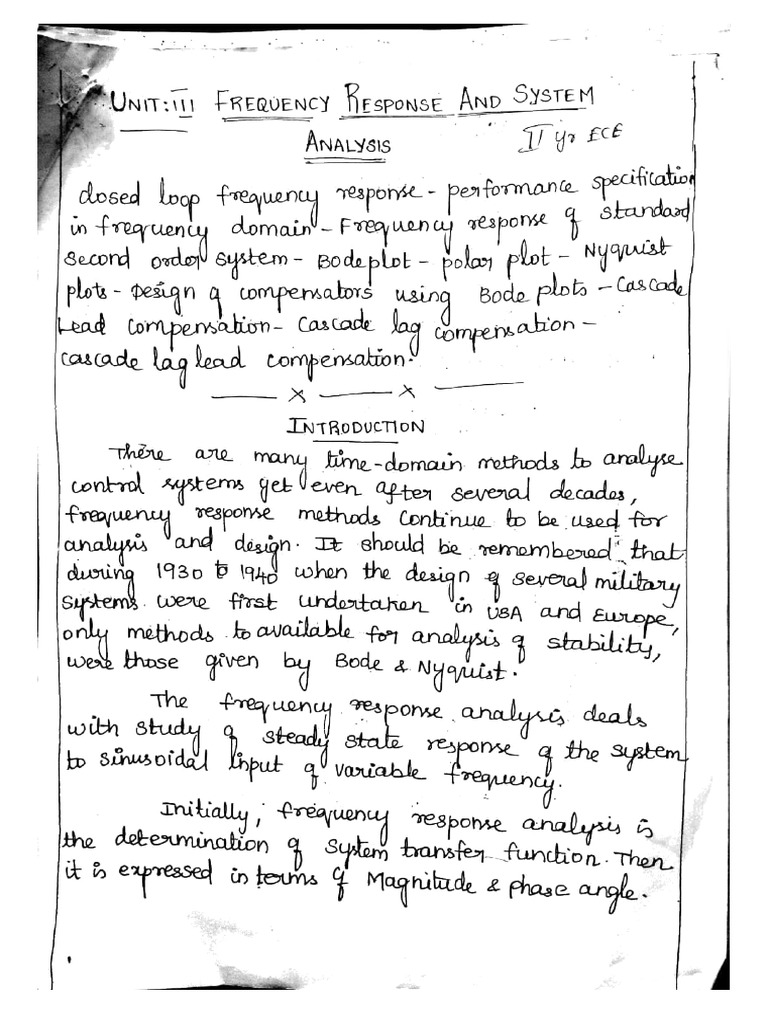 UNIT: III FREQUENCY RESPONSE AND SYSTEM
ANALYSIS
II yr ECE
closed loop frequency response - performance specification
in frequency domain - Frequency response of standard
second order system - Bode plot - polar plot - Nyquist
plots - Design of compensators using Bode plots - Cascade
Lead compensation - Cascade lag compensation -
cascade lag lead compensation.
x x
INTRODUCTION
There are many time-domain methods to analyse
control systems yet even after several decades,
frequency response methods continue to be used for
analysis and design. It should be remembered that
during 1930 to 1940 when the design of several military
systems were first undertaken in USA and Europe,
only methods to available for analysis of stability,
were those given by Bode & Nyquist.
The frequency response analysis deals
with study of steady state response of the system
to sinusoidal input of variable frequency.
Initially, frequency response analysis is
the determination of system transfer function. Then
it is expressed in terms of Magnitude & phase angle.